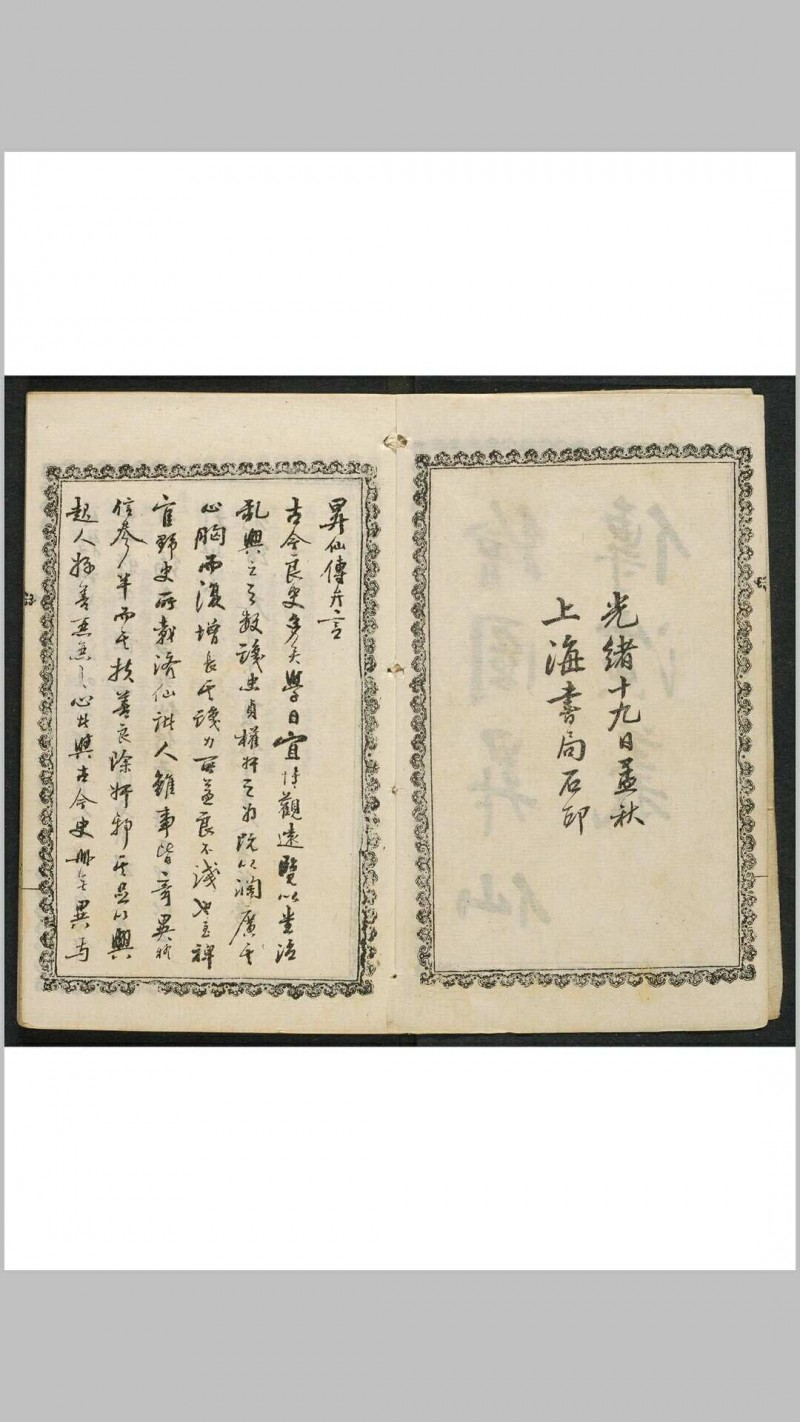 光緒十九日孟秋
上海書局石印
昇仙傳弁言
古今良史多矣學者宜博觀遠覽以悉治
亂興亡之数識忠貞權奸之為既以濶廣其
心胸而復增長其識力所益良不淺也至稗
官野史所載济仙諸人雖事皆奇異
信參半而其扶善良除奸邪其足以興
起人好善惡惡之心此與古今史冊無異